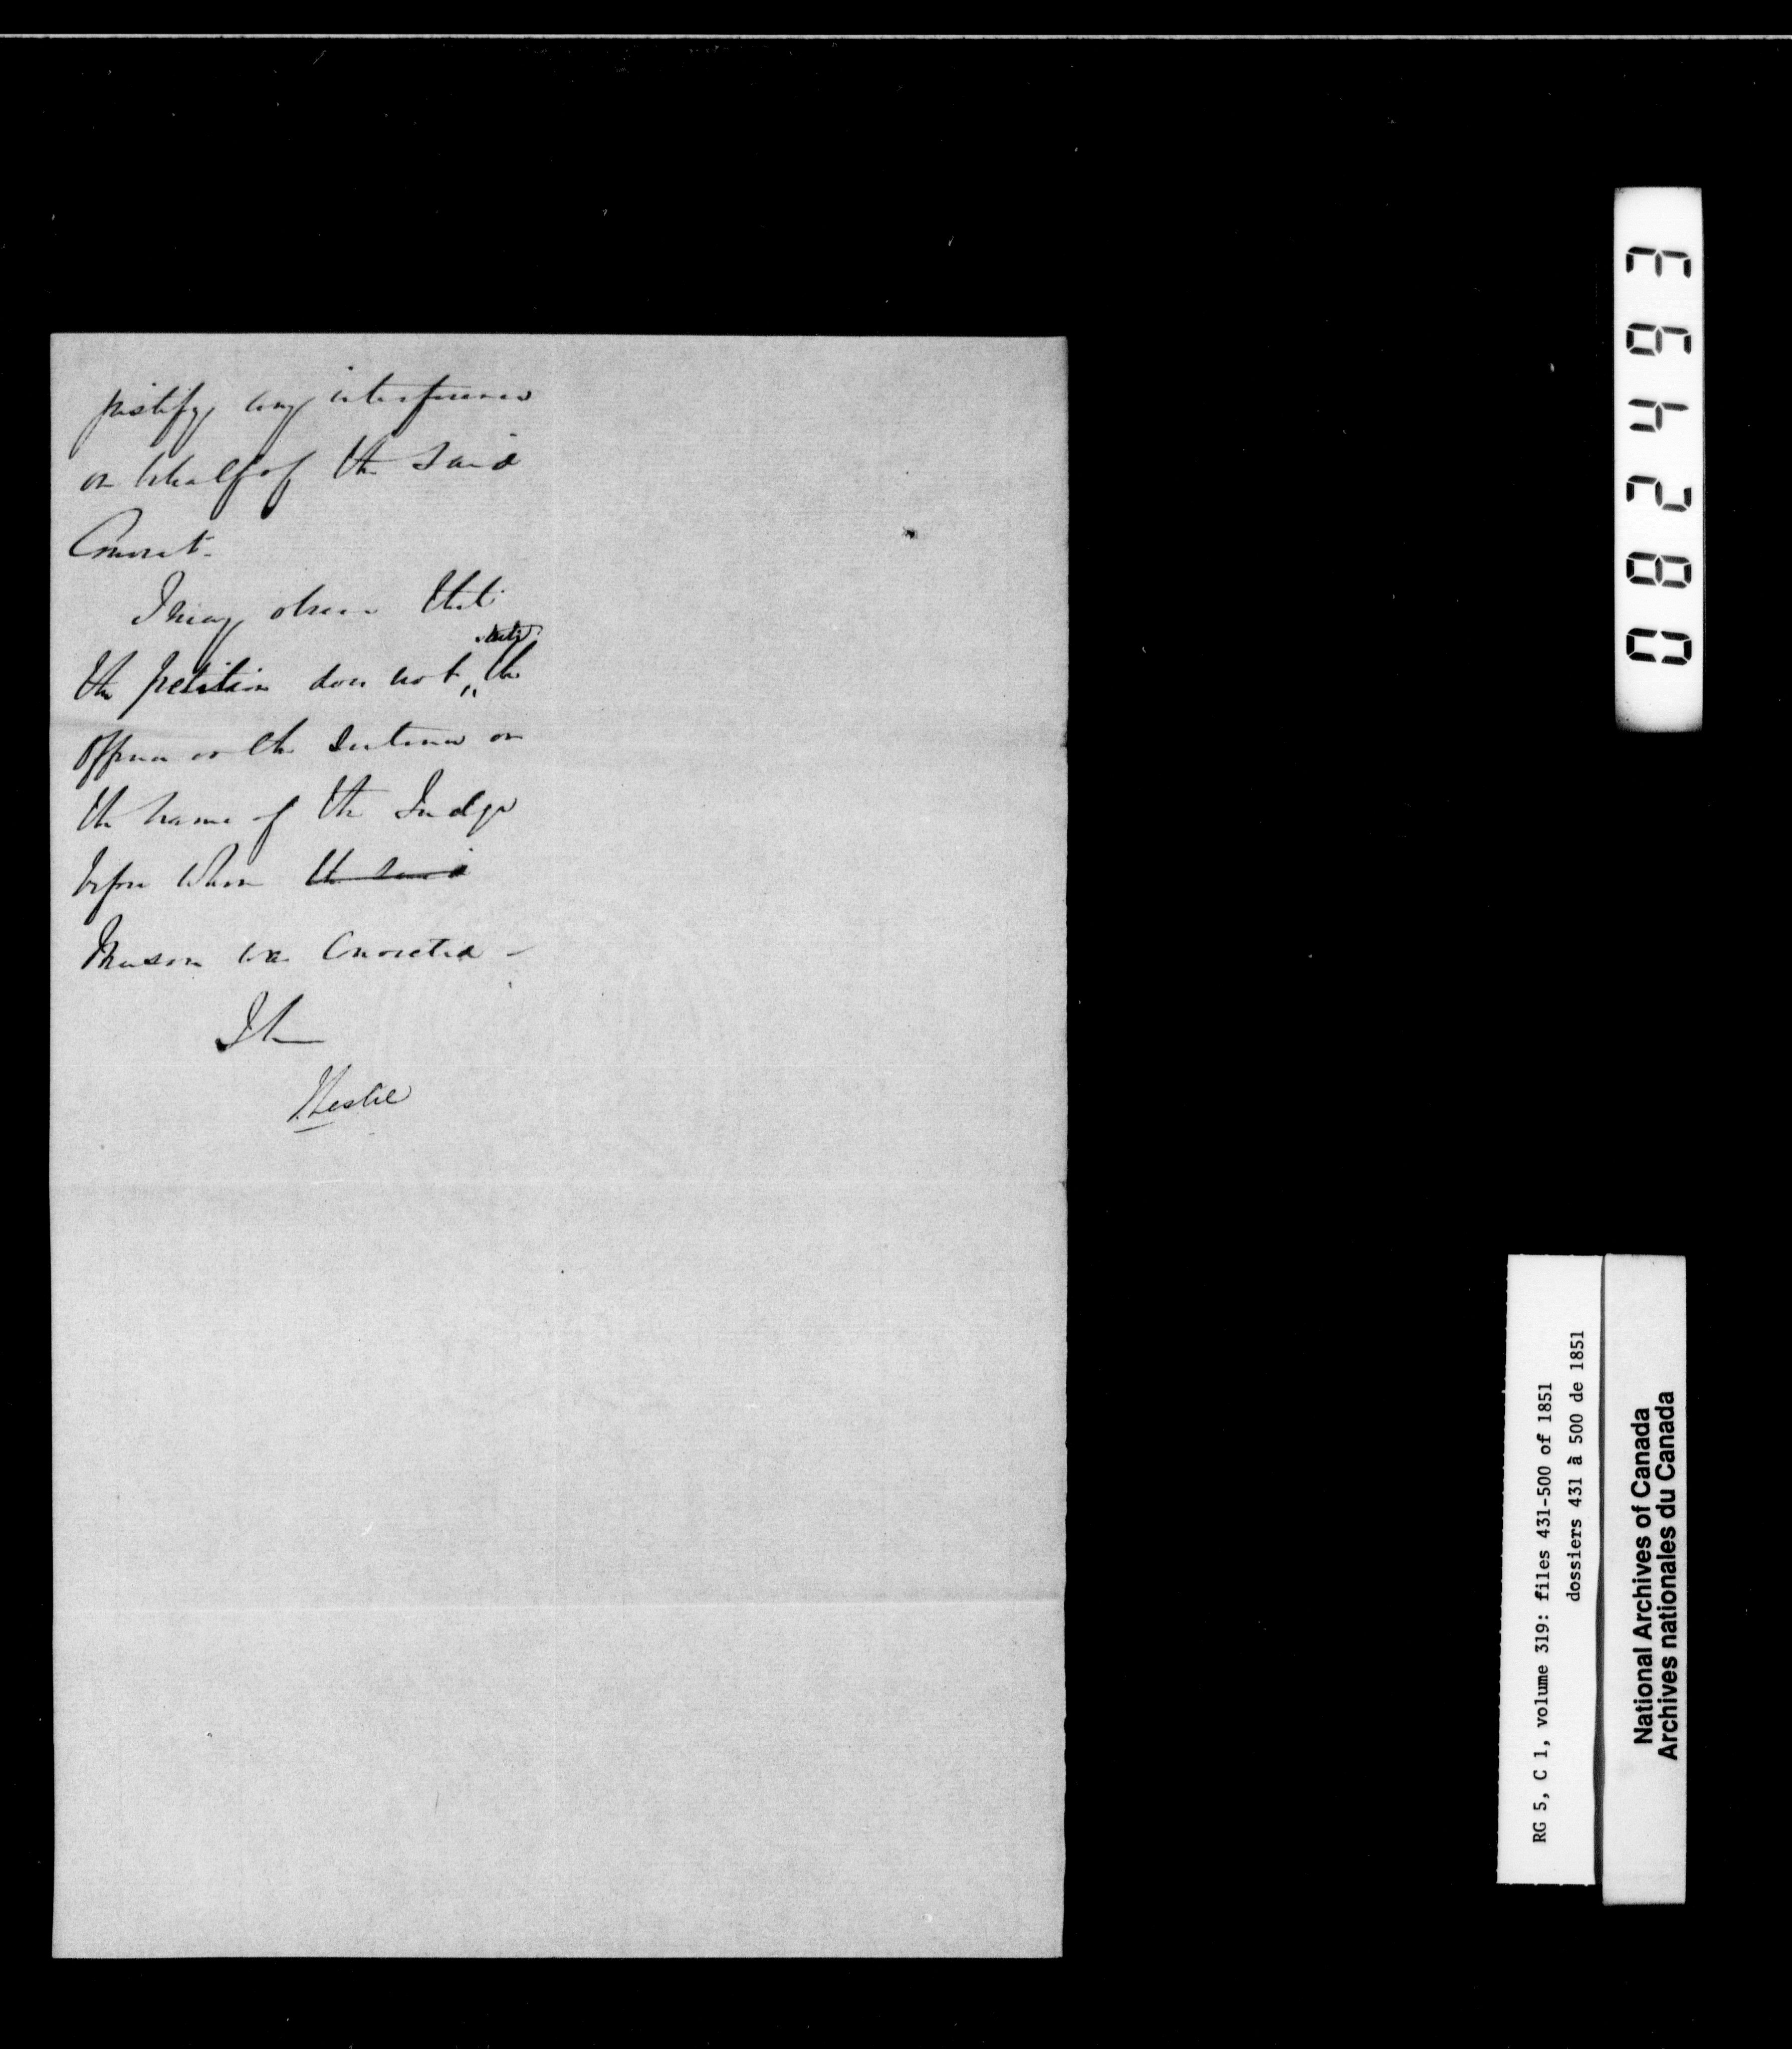 justify any interference
on behalf of the said
Convict.
I may observe that
the petition does not state the
offence or the sentence or
the name of the Judge
before whom the said
Mason was Convicted -
I h
J Leslie
082463
RG 5, C 1, volume 319: files 431-500 of 1851
dossiers 431 à 500 de 1851
National Archives of Canada
Archives nationales du Canada